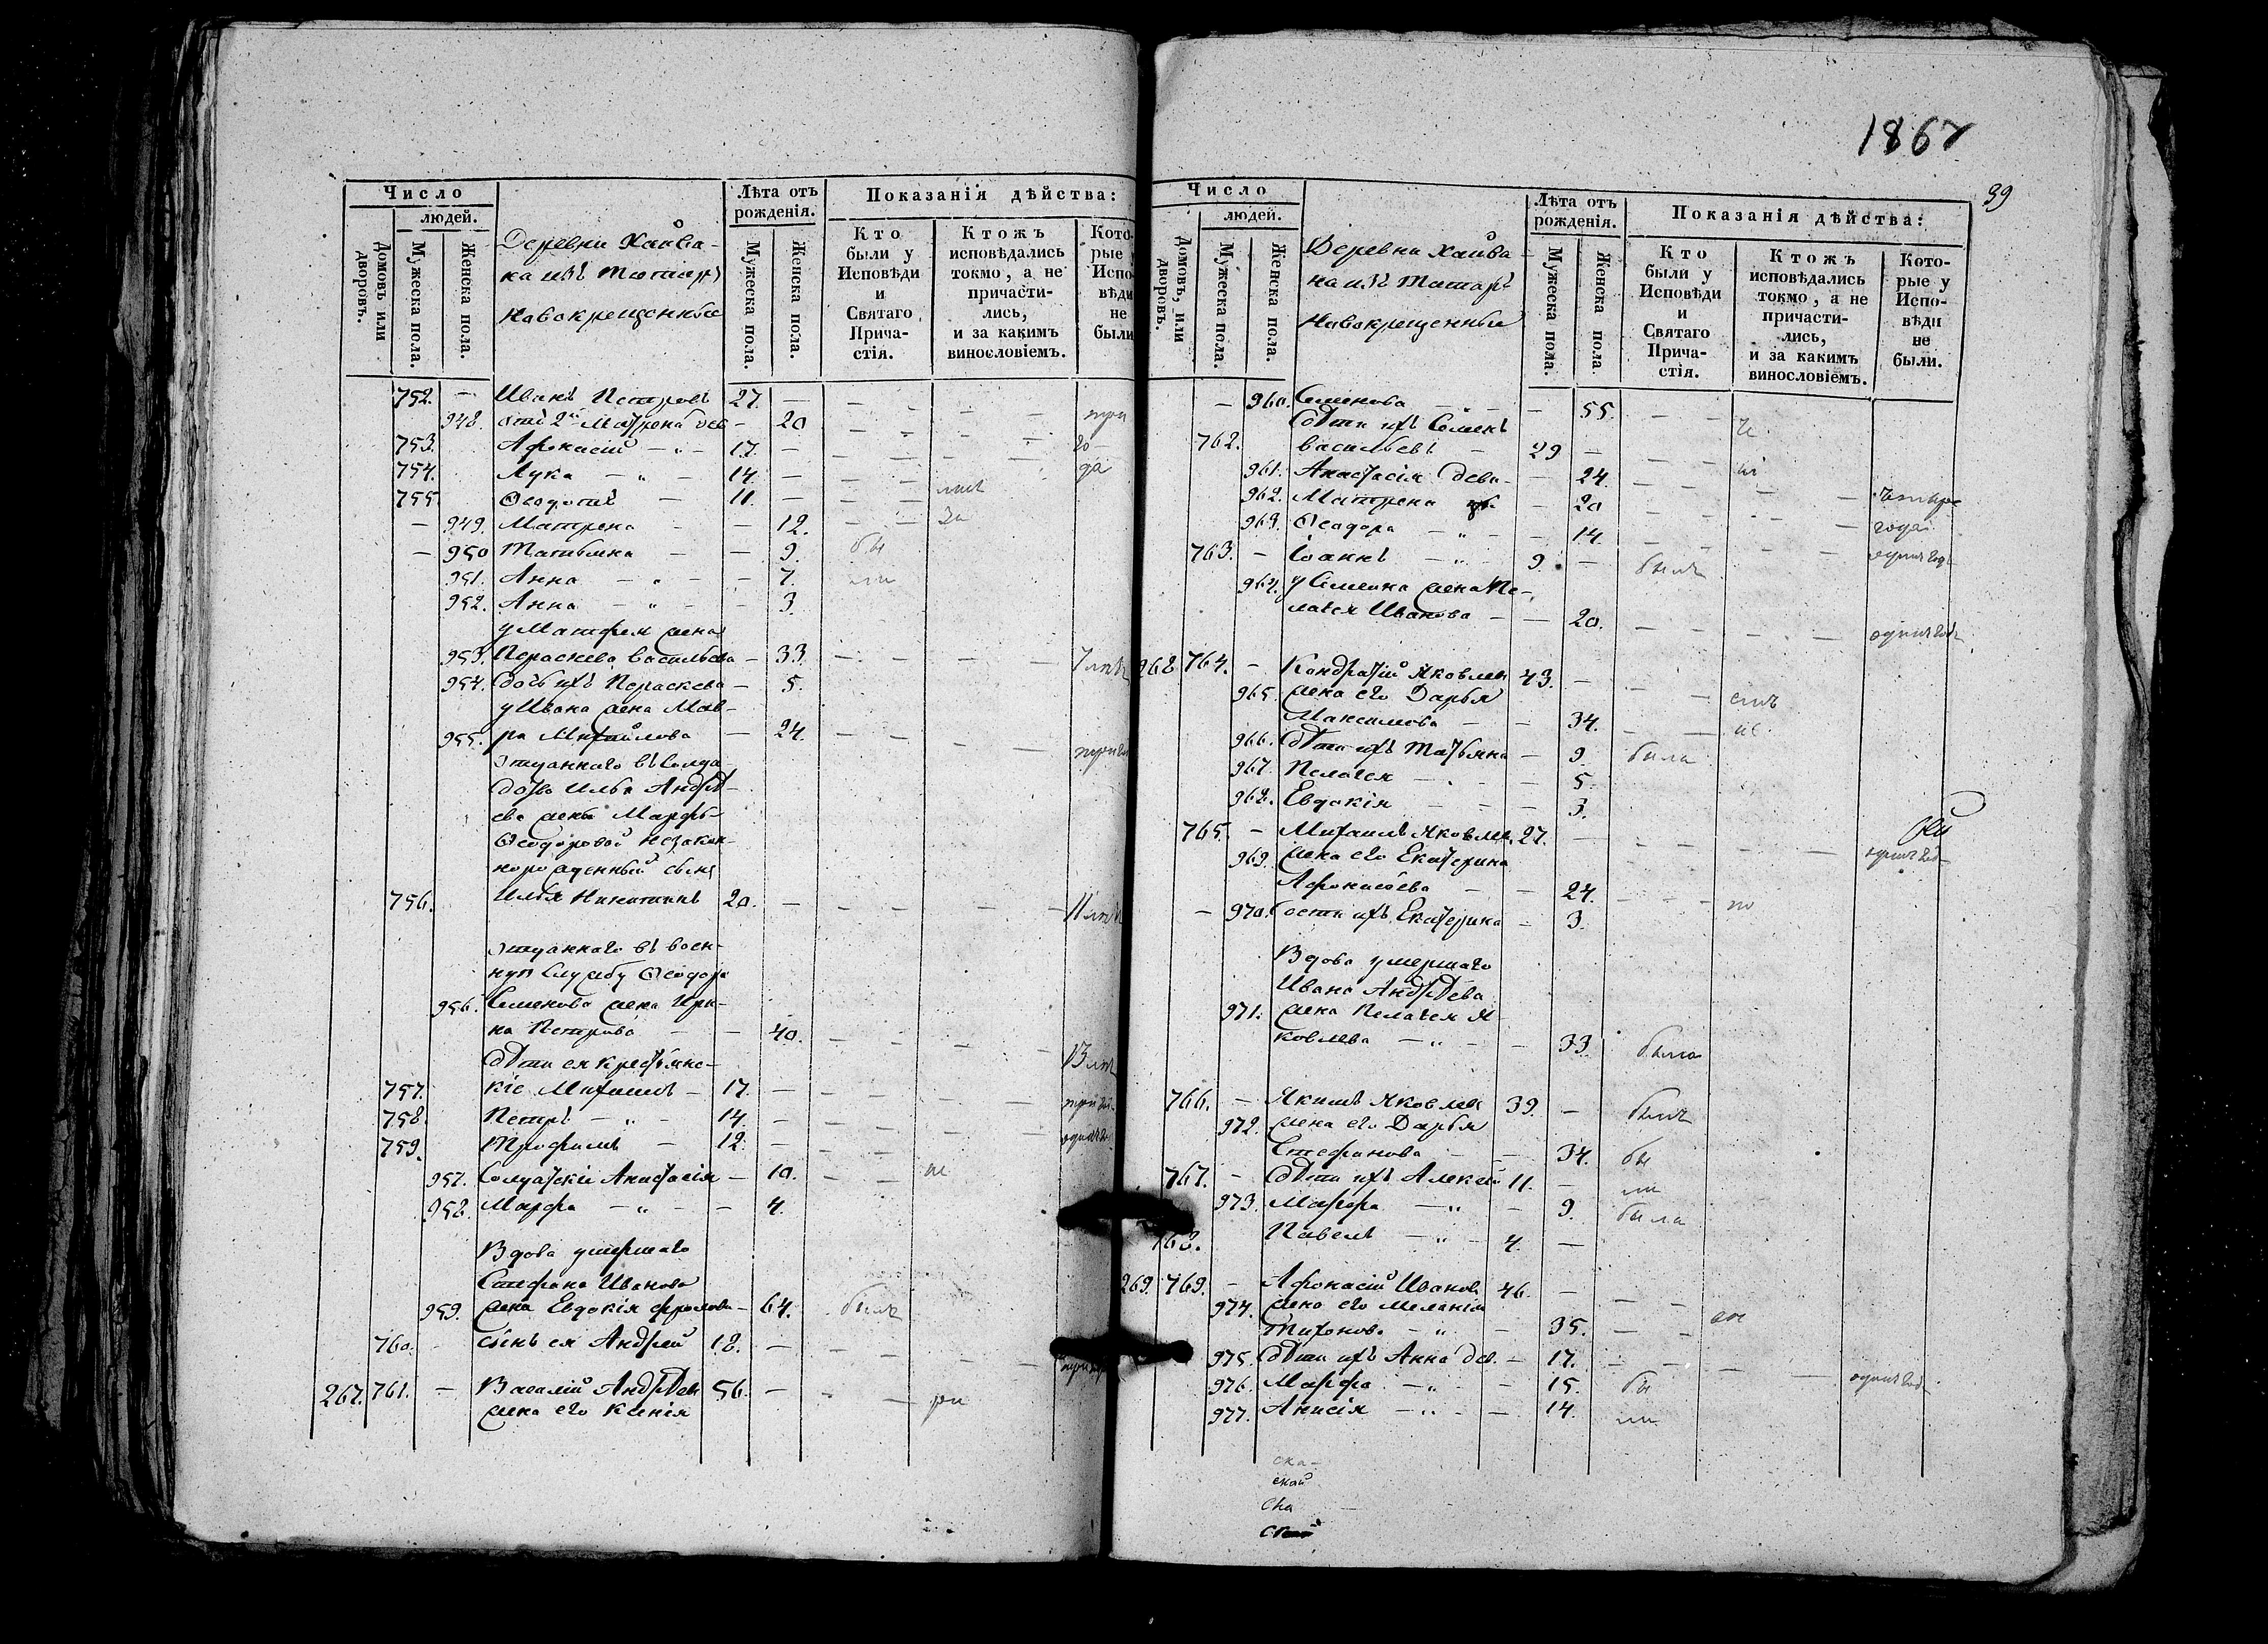 Число
людей.
Домовъ или дворовъ.
Мужеска пола.
Женска пола.
Деревни Хайва-
на изъ татаръ
Новокрещенные
Лѣта отъ рожденія.
Мужеска пола.
Женска пола.
Показанія дѣйства:
Кто были у Исповѣди и Святаго Причастія.
Ктожъ исповѣдались токмо, а не причастились, и за какимъ винословіемъ.
Которые у Исповѣди не были
752. — Иванъ Петровъ 27. —
948. Матрена дев — 20 три
753. Афонасій — „ — 17. — го-
754. Лука — „ — 14. — да
755. Ѳеодотъ — 11. —
— 949. Матрена — — 12. за
— 950 Татьяна — — 9. бы
951. Анна — „ — — 7. ли
952. Анна — „ — — 3.
у Матфея жена
953. Параскева Васильева — 33. 7 лѣтъ
954. дочь ихъ Параскева — 5.
у Ивана жена Мав-
955. ра Михайлова — 24.
отданнаго въ солда-
Ильи Андрѣ-
ева жены Марѳы
Ѳеодоровой незакон-
норожденный сынъ
756. Илья Никитинъ 20. — 11 лѣтъ
отданнаго въ воен-
ную службу Ѳеодора
956. Семенова жена Ири-
на Петрова — — 40. 13 лѣтъ
дѣти ея крестьянс-
757. кіе Михаилъ — 17. —
758. Петръ — „ — 14. —
759. Трофимъ — 12. —
957. Солдатскіе Анастасія — 10.
958. Марфа — „ — — 4.
Вдова умершаго
Стефана Иванова
959. жена Евдокія Фролова — 64. была
760. — сынъ ея Андрей 18. —
267. 761. — Василій Андрѣевъ 56. —
жена его Ксенія
1867
99
Число
людей.
Домовъ, или дворовъ.
Мужеска пола.
Женска пола.
Деревни Хайва-
на изъ татаръ
Новокрещенные
Лѣта отъ рожденія.
Мужеска пола.
Женска пола
Показанія дѣйства:
Кто были у Исповѣди и Святаго Причастія.
Ктожъ исповѣдались токмо, а не причастились, и за какимъ винословіемъ.
Которые у Исповѣди не были.
— 960. Семенова — — 55.
дѣти ихъ Семенъ
762. Васильевъ — 29 —
961. Анастасія дева — — 24.
962. Матрена — 20 четыре
963. Ѳеодора — „ — — 14. года
763. — Іоаннъ — „ — 9. — былъ одинъ годъ
964. у Семена жена Пе-
лагея Иванова — — 20. одинъ годъ
268 764. — Кондратій Яковлев 43. —
965. жена его Дарья
Максимова — — 34.
966. дѣти ихъ Татьяна — 9. была
967. Пелагея — — 5.
968. Евдокія — — 3.
765. — Михаилъ Яковлев. 27. — одинъ год
969. жена его Екатерина
Афонасьева — — 24. по
— 970. дочь ихъ Екатерина — 3.
Вдова умершаго
Ивана Андрѣева
971. жена Пелагея Я
ковлева — „ — — 33. была
766. — Якимъ Яковлев 39. — былъ
972. жена его Дарья
Стефанова — — 34. бы
767. — дѣти ихъ Алексѣй 11. — ли
973. Марфа — „ — 9. была
768. Павелъ — „ — 4. —
269. 769. — Афонасій Иванов 46. —
974. жена его Меланія
Тихонова — „ — 35.
975. дѣти ихъ Анна дев. — 17. одинъ год
976. Марфа — „ — — 15. бы
977. Анисія — „ — — 14. ли
ска-
ской
ска